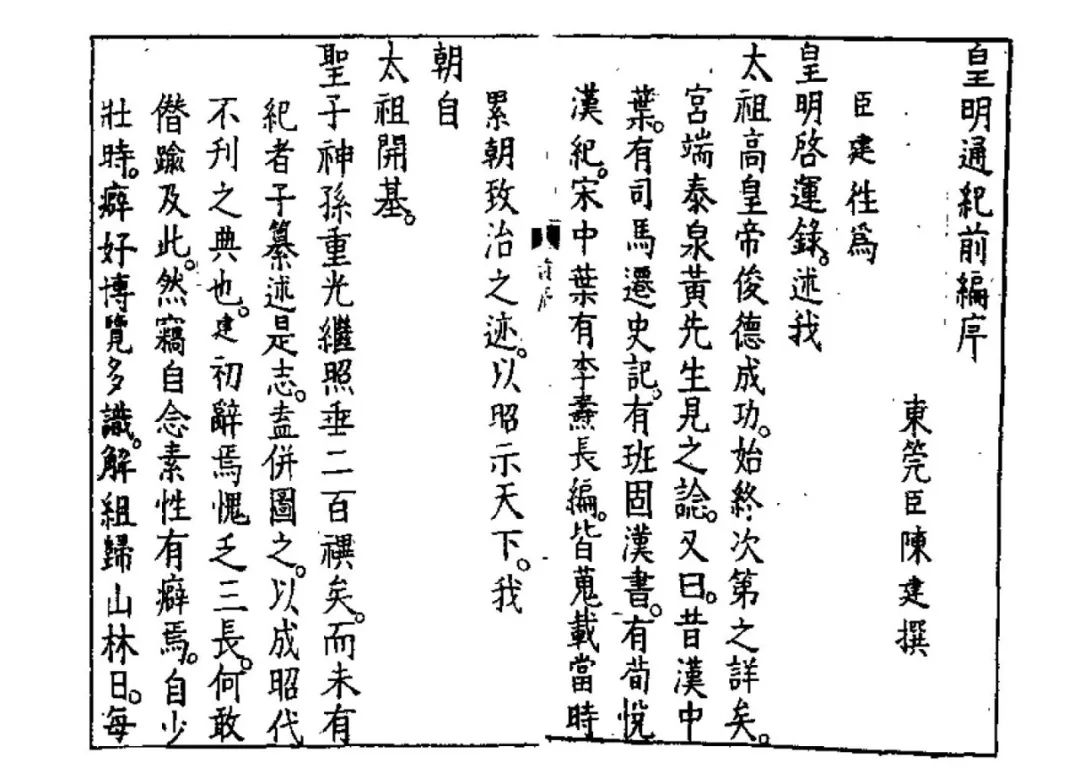 皇明通紀前編序
東筦臣陳建撰
臣建徃爲
皇明啓運錄。述我
太祖高皇帝俊德成功。始終次第之詳矣。
宮端泰泉黃先生見之諗。又曰。昔漢中
葉。有司馬遷史記。有班固漢書。有荀悅
漢紀。宋中葉有李燾長編。皆蒐載當時
累朝致治之迹。以昭示天下。我
朝自
太祖開基。
聖子神孫重光繼照垂二百禩矣。而未有
紀者子纂述是志。盍併圖之。以成昭代
不刋之典也。建初辭焉愧乏三長。何敢
僭踰及此。然竊自念素性有癖焉。自少
壯時。癖好博覽多識。解組歸山林日。每